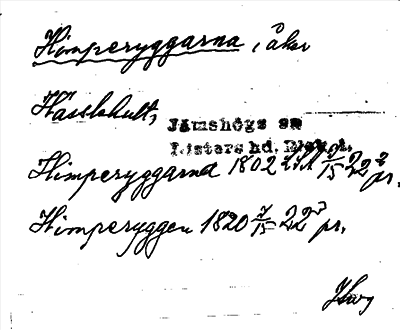 Himperyggarna, i åker
Hässlehult,
Jämshögs sn
Listers hd. Blek. l.
Himperyggarna 1802 2/15 22 2 pr.
Himperyggen 1820 2/15 22 3 pr.